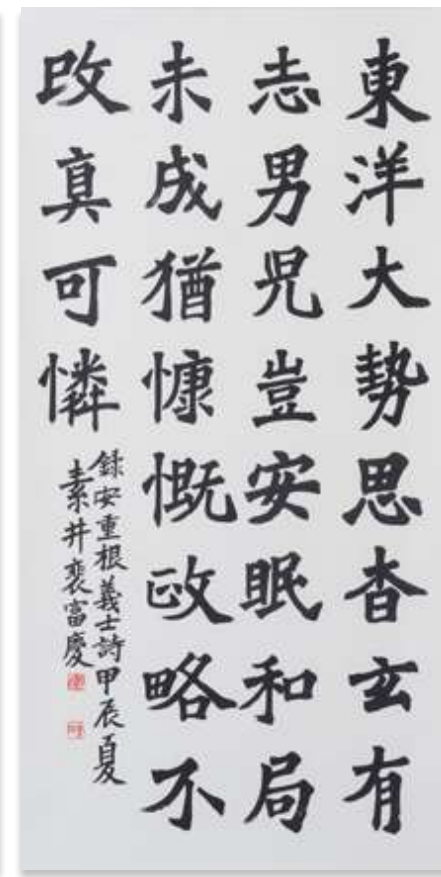 東洋大勢思杳玄有
志男児豈安眠和局
未成猶慷慨政略不
改真可憐
錄安重根義士詩甲辰夏
素井裵富慶